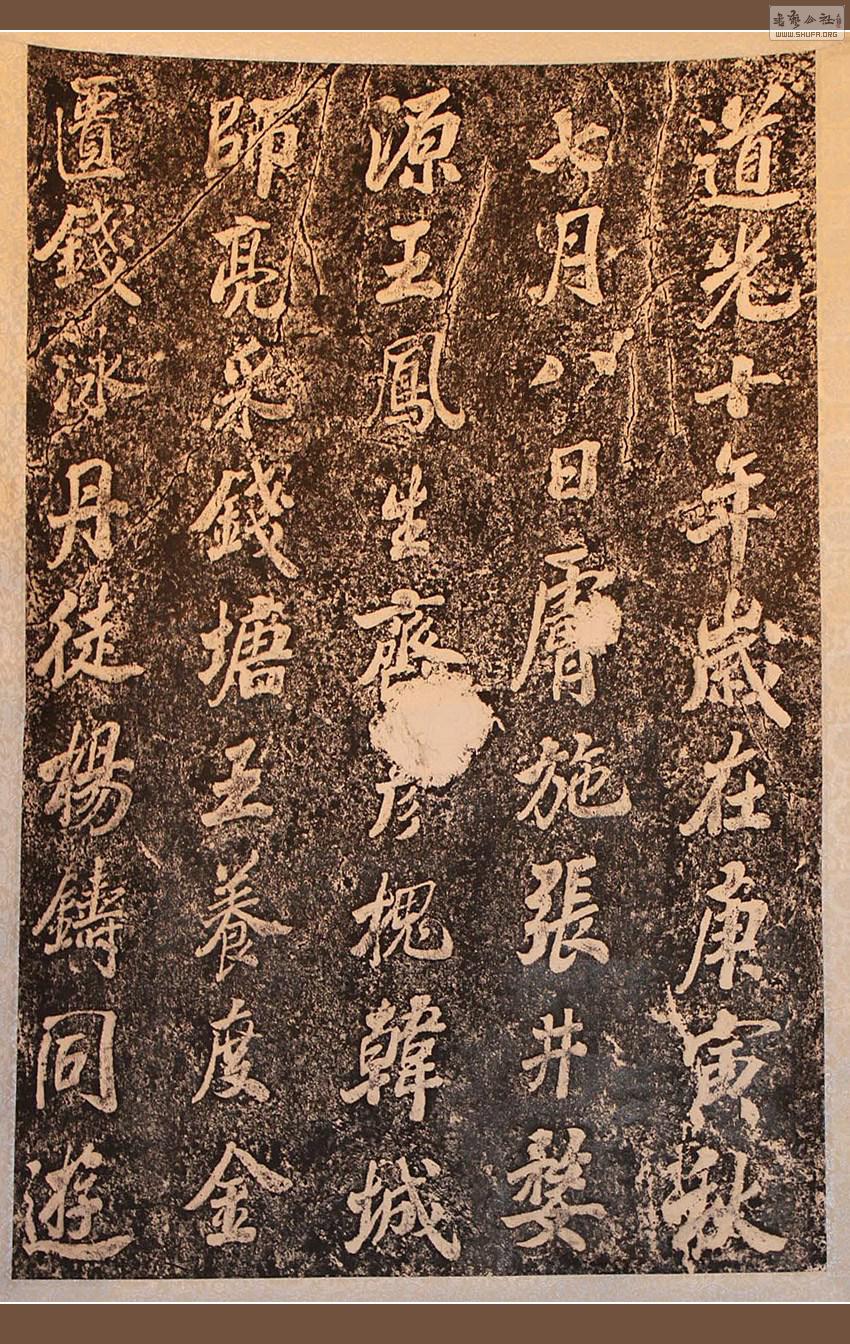 道光十年歲在庚寅秋
七月八日膚施張井婺
源王鳳生齊彥槐韓城
師亮采錢塘王養度金
匱錢泳丹徒楊鑄同遊
WWW.SHUFA.ORG